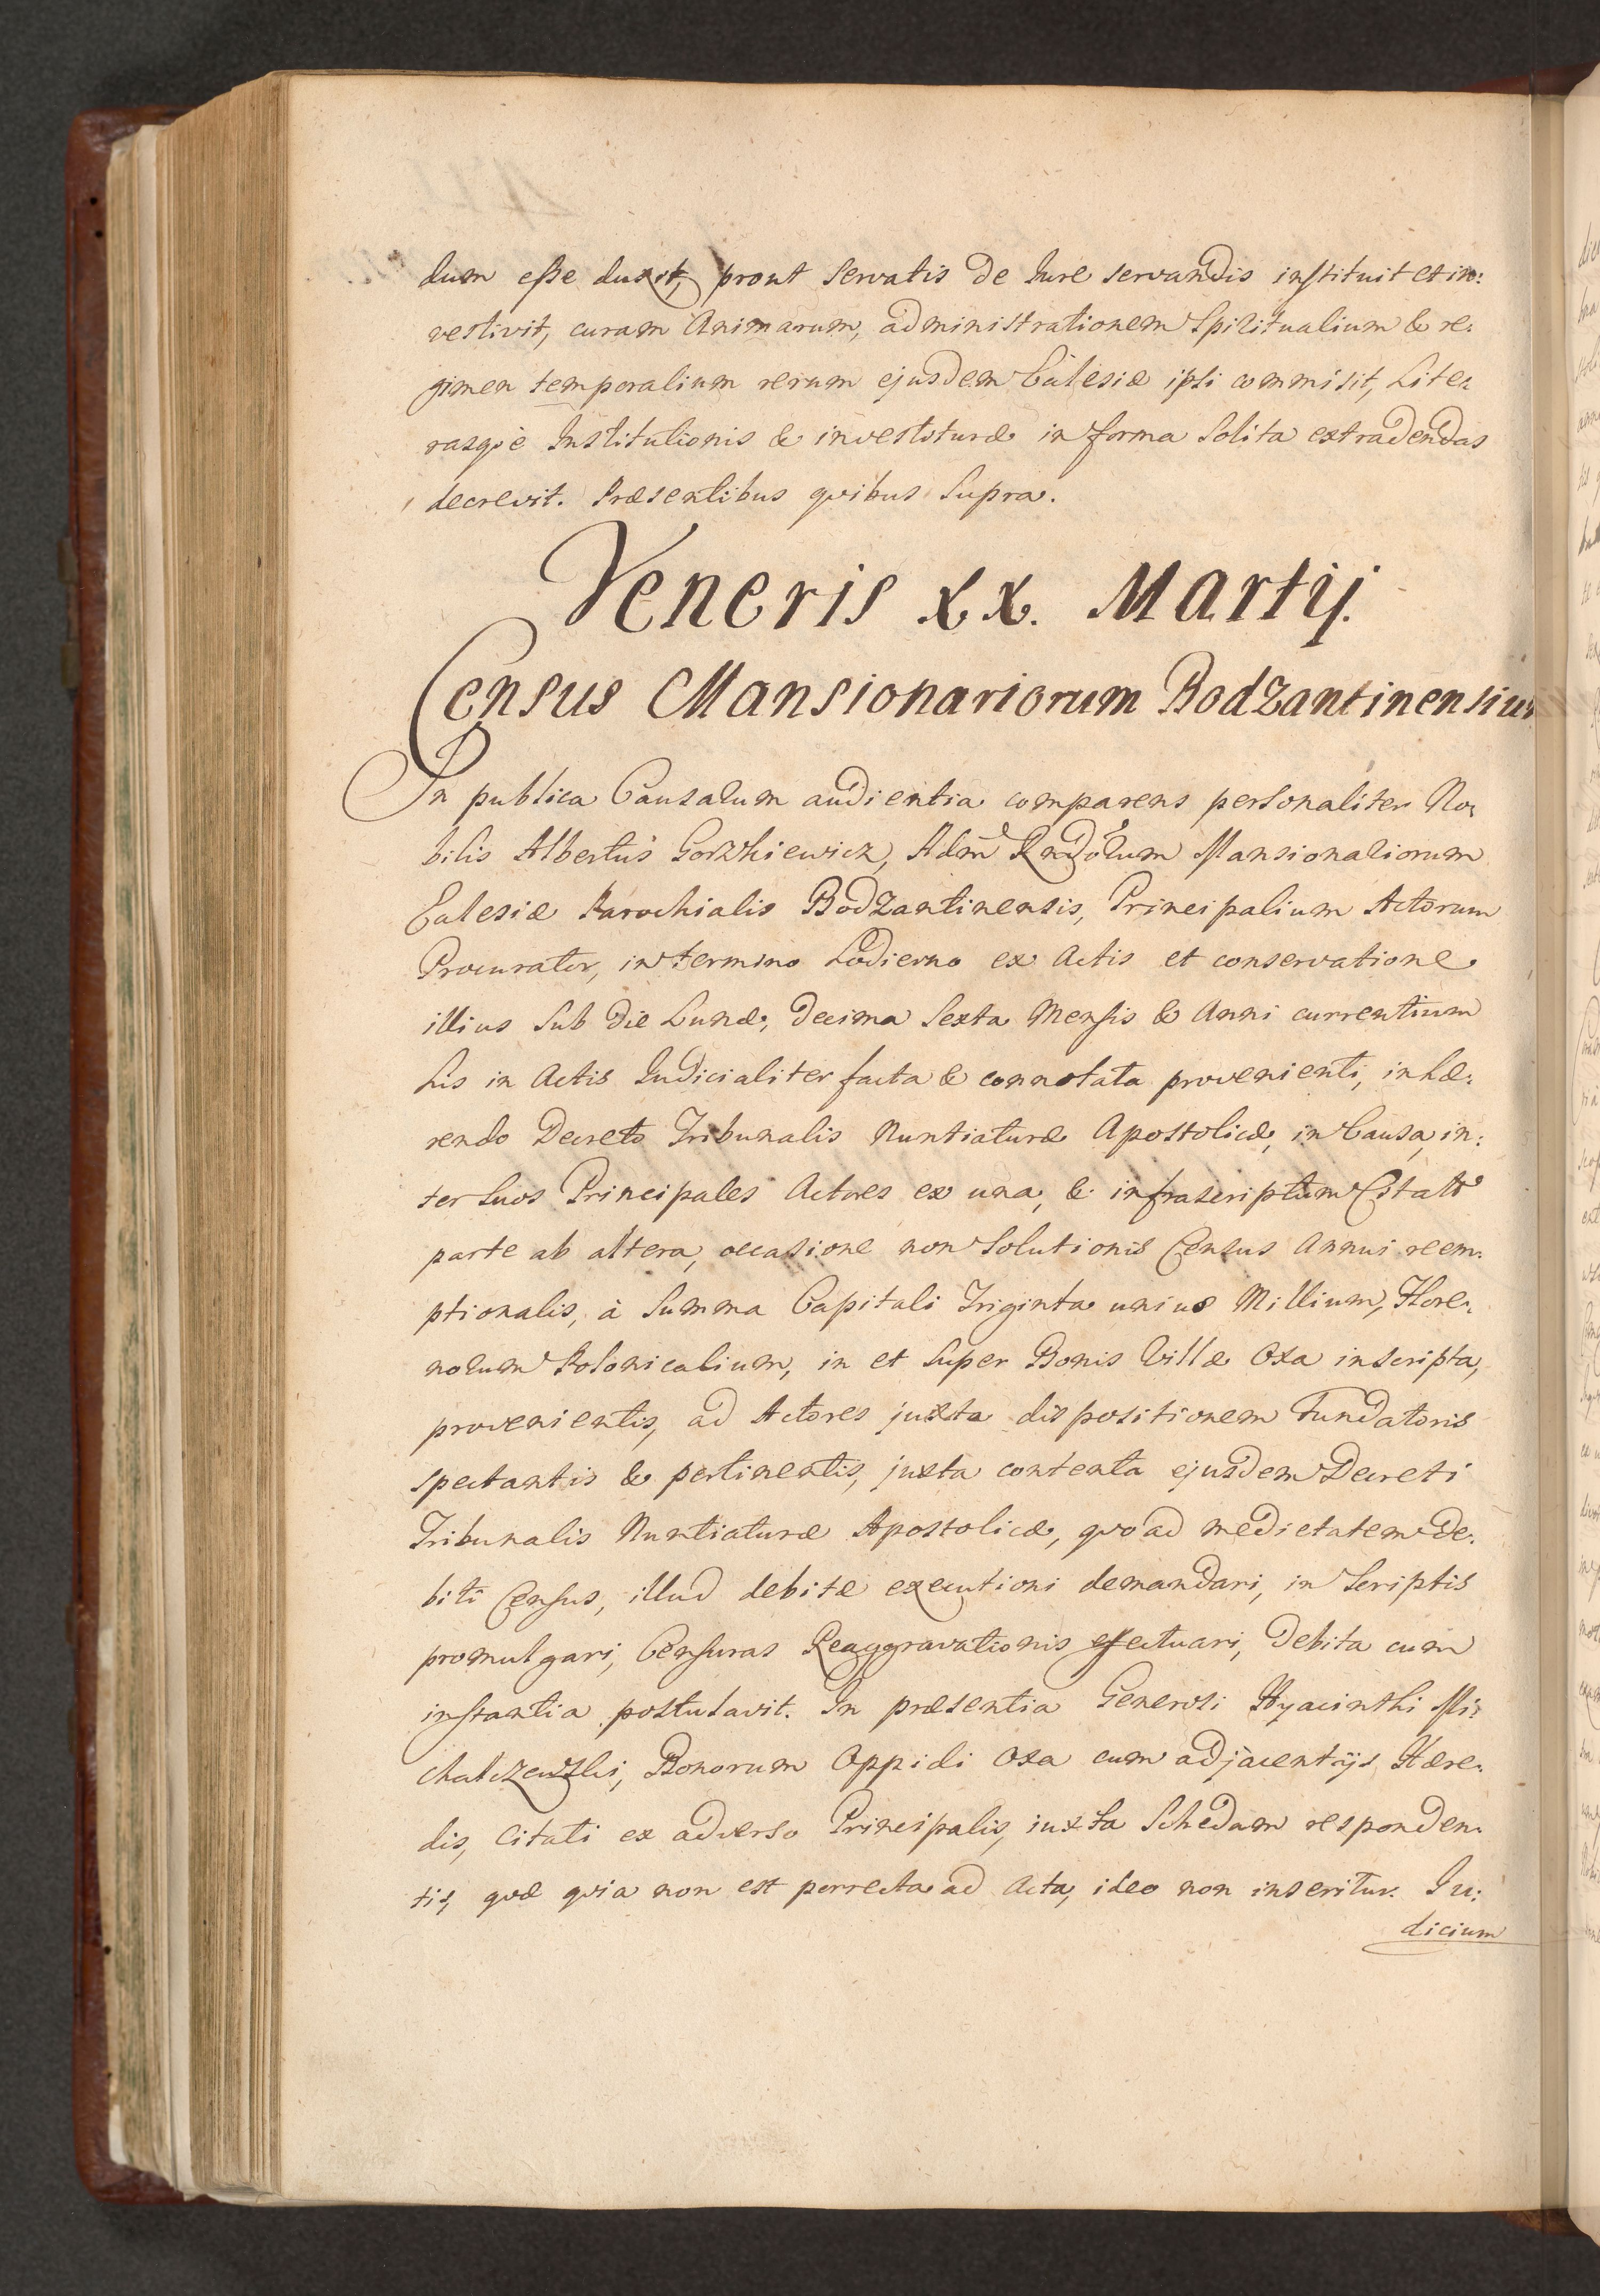 dum esse duxit, prout servatis de Iure servandis instituit et in:
vestivit, curam Animarum, administrationem Spiritualium & re:
gimen temporalium rerum ejusdem Ecclesiæ ipsi commisit, Lite:
rasqve Institutionis & investituræ in forma Solita extradendas
decrevit. Præsentibus qvibus Supra.
Veneris XX. Martij.
Census Mansionariorum Bodzantinensium
In publica Causarum audientia comparens personaliter No:
bilis Albertus Gorzkiewicz, Adm Rndorum Mansionariorum
Ecclesiæ Parochialis Bodzantinensis, Principalium Actorum
Procurator, in termino hodierno ex Actis et conservatione
illius Sub die Lunæ, decima Sexta Mensis & Anni currentium
his in Actis Iudicialiter facta & connotata provenienti, inhæ:
rendo Decreto Tribunalis Nuntiaturæ Apostolicæ, in Causa, in:
ter Suos Principales Actores ex una, & infrascriptum Citatum
parte ab altera, occasione non Solutionis Census Annui reem:
ptionalis, à Summa Capitali Triginta unius Millium, Flore:
norum Polonicalium, in et Super Bonis Villæ Oxa inscripta,
provenientis, ad Actores juxta dispositionem Fundatoris
spectantis & pertinentis, juxta contenta ejusdem Decreti
Tribunalis Nuntiaturæ Apostolicæ, qvo ad medietatem de:
biti Census, illud debitæ executioni demandari, in Scriptis
promulgari, Censuras Reaggravationis effectuari, debita cum
instantia postulavit. In præsentia Generosi Hyacinthi Mi:
chalczewski, Bonorum Oppidi Oxa cum adjacentijs Hære:
dis, Citati ex adverso Principalis, iuxta Schedam responden:
tis, qvæ qvia non est porrecta ad Acta, ideo non inseritur. Iu:
dicium